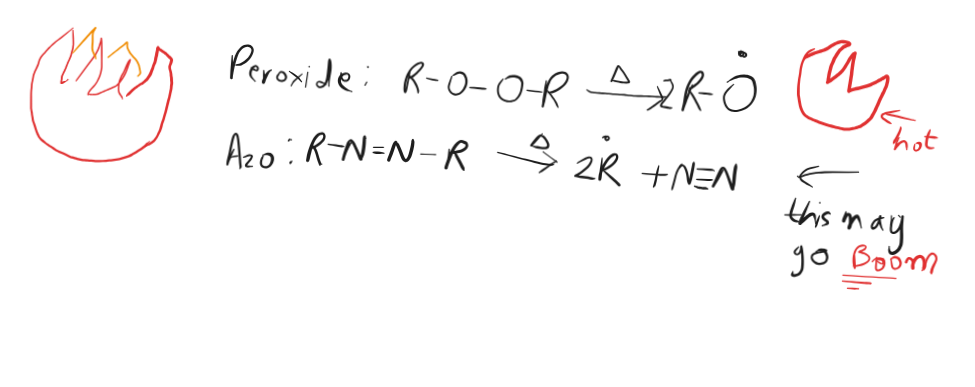 Peroxide: R-O-O-R —Δ→ 2R-Ȯ
hot
Azo: R-N=N-R —Δ→ 2Ṙ + N≡N ←
this may
go Boom